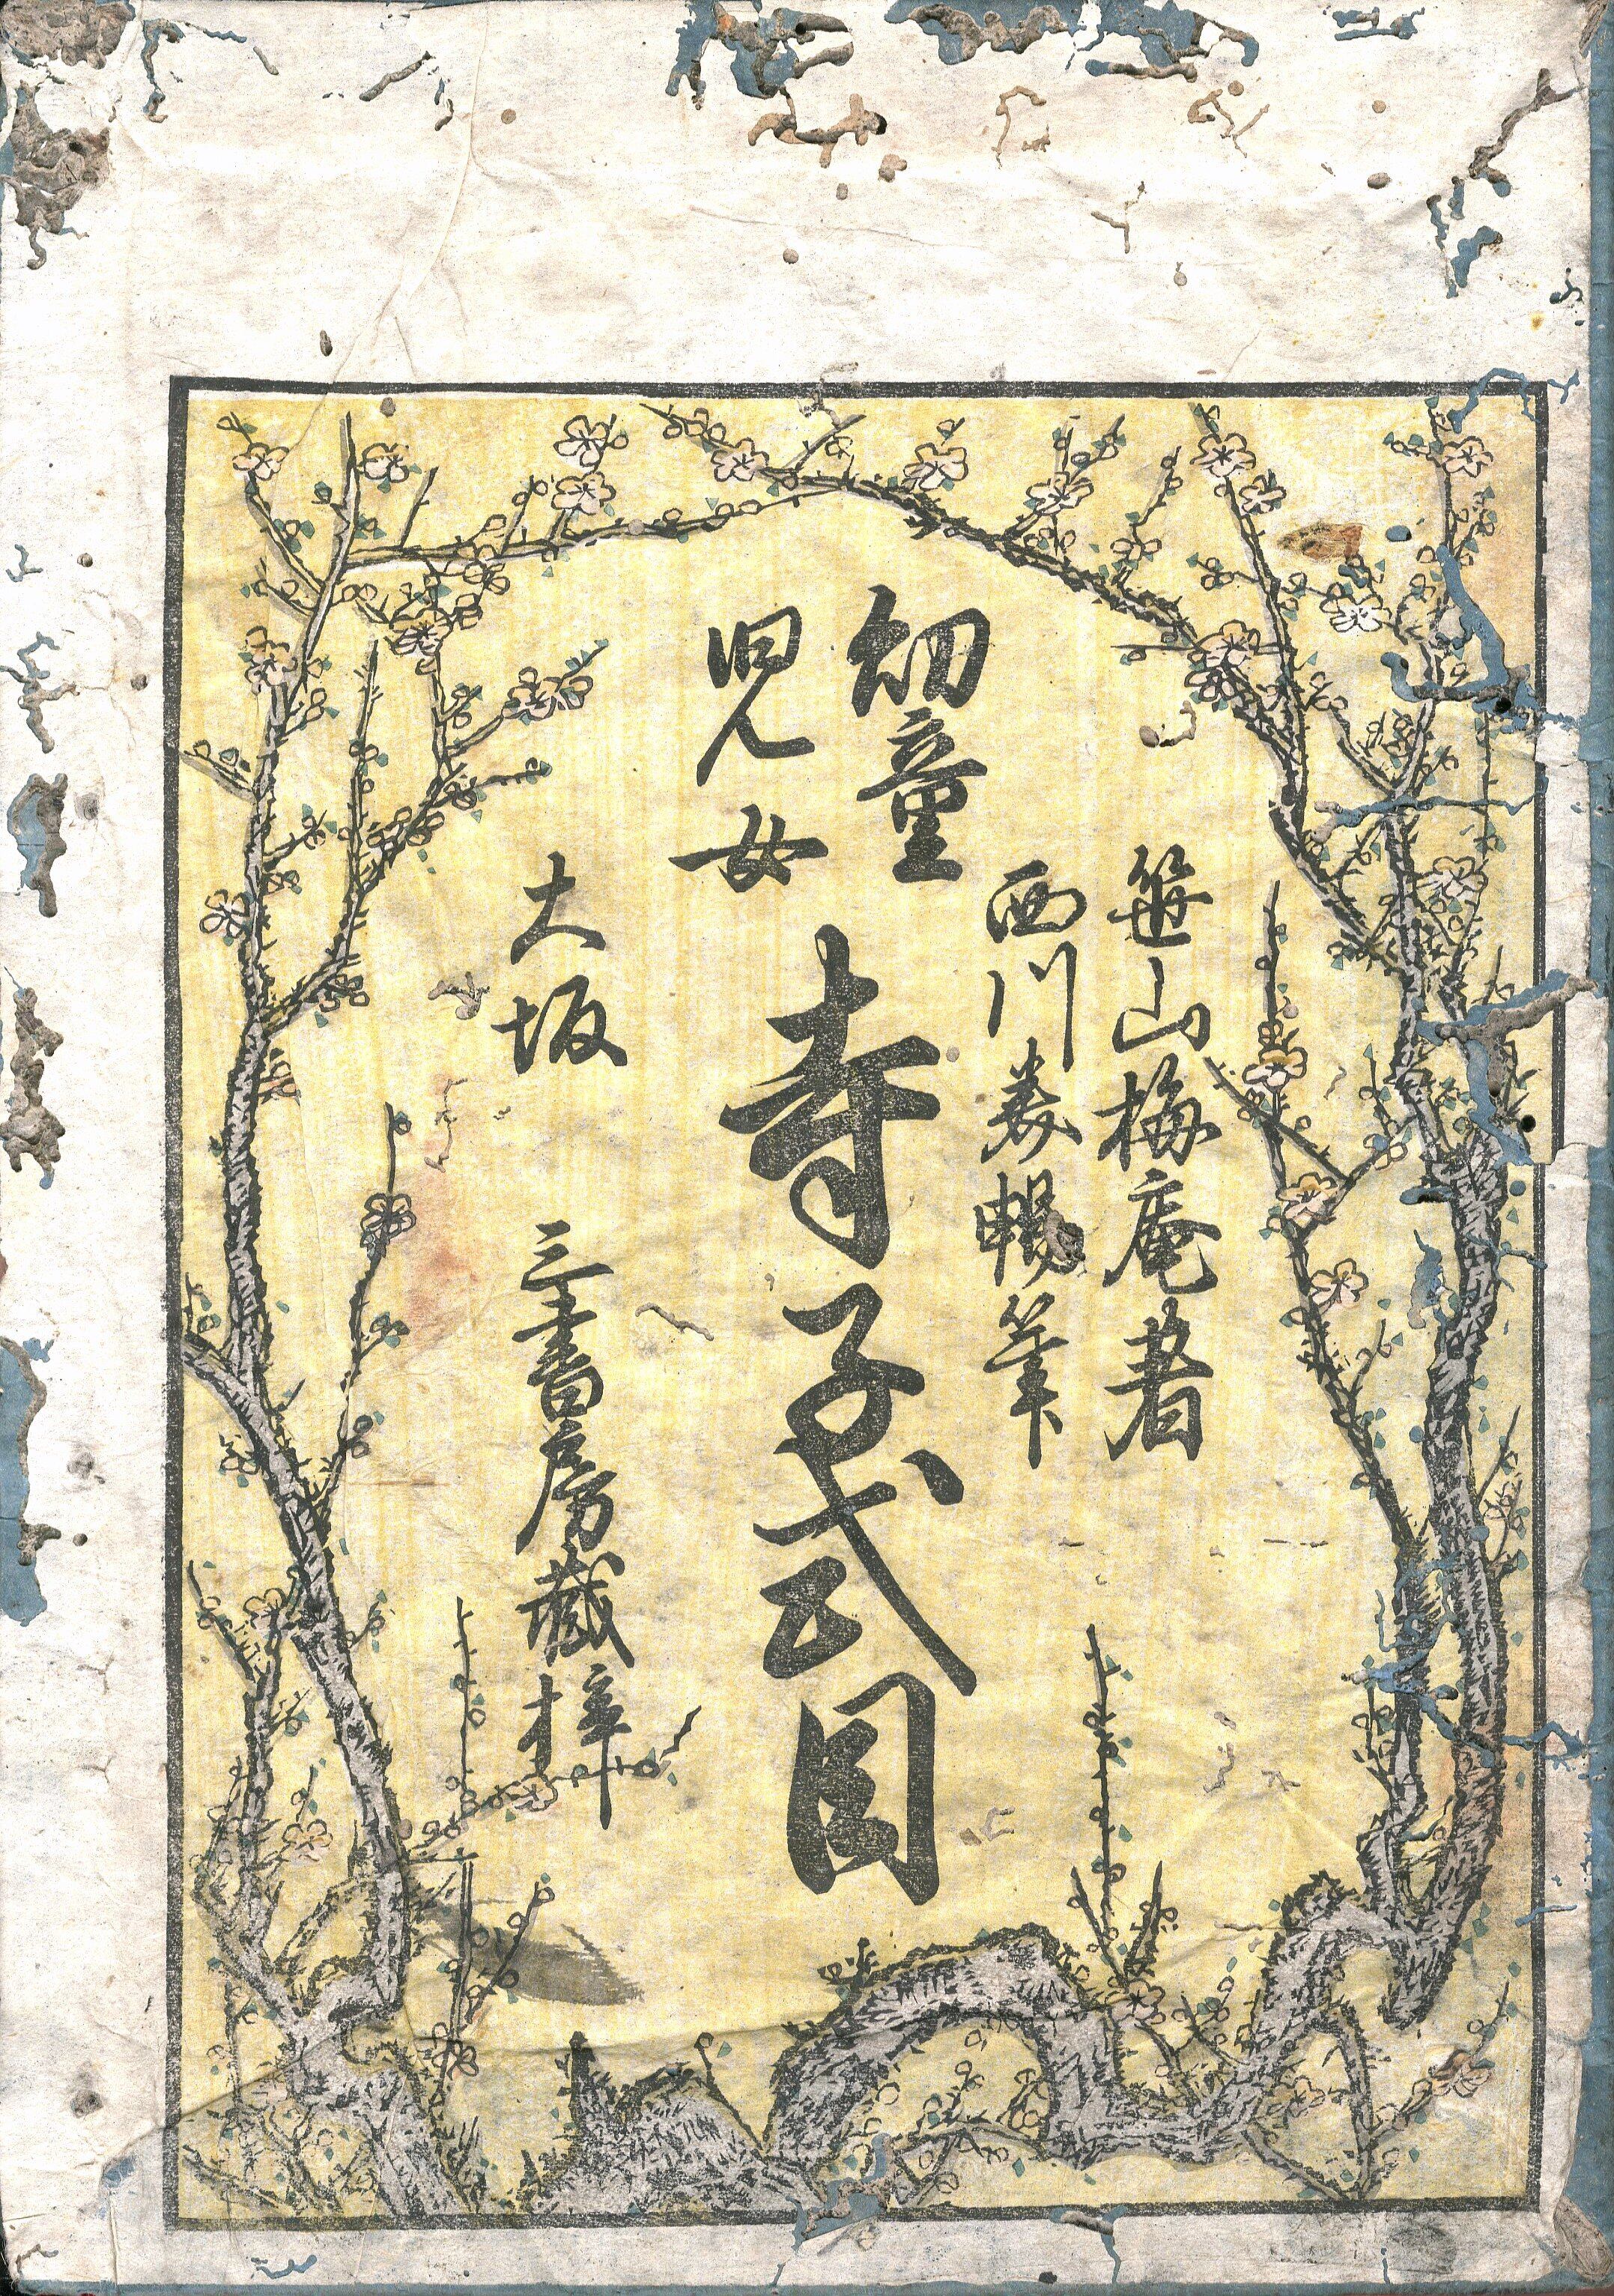 笹山梅庵著
西川竜暢筆
幼童
児女
寺子式目
大坂 三書房蔵梓